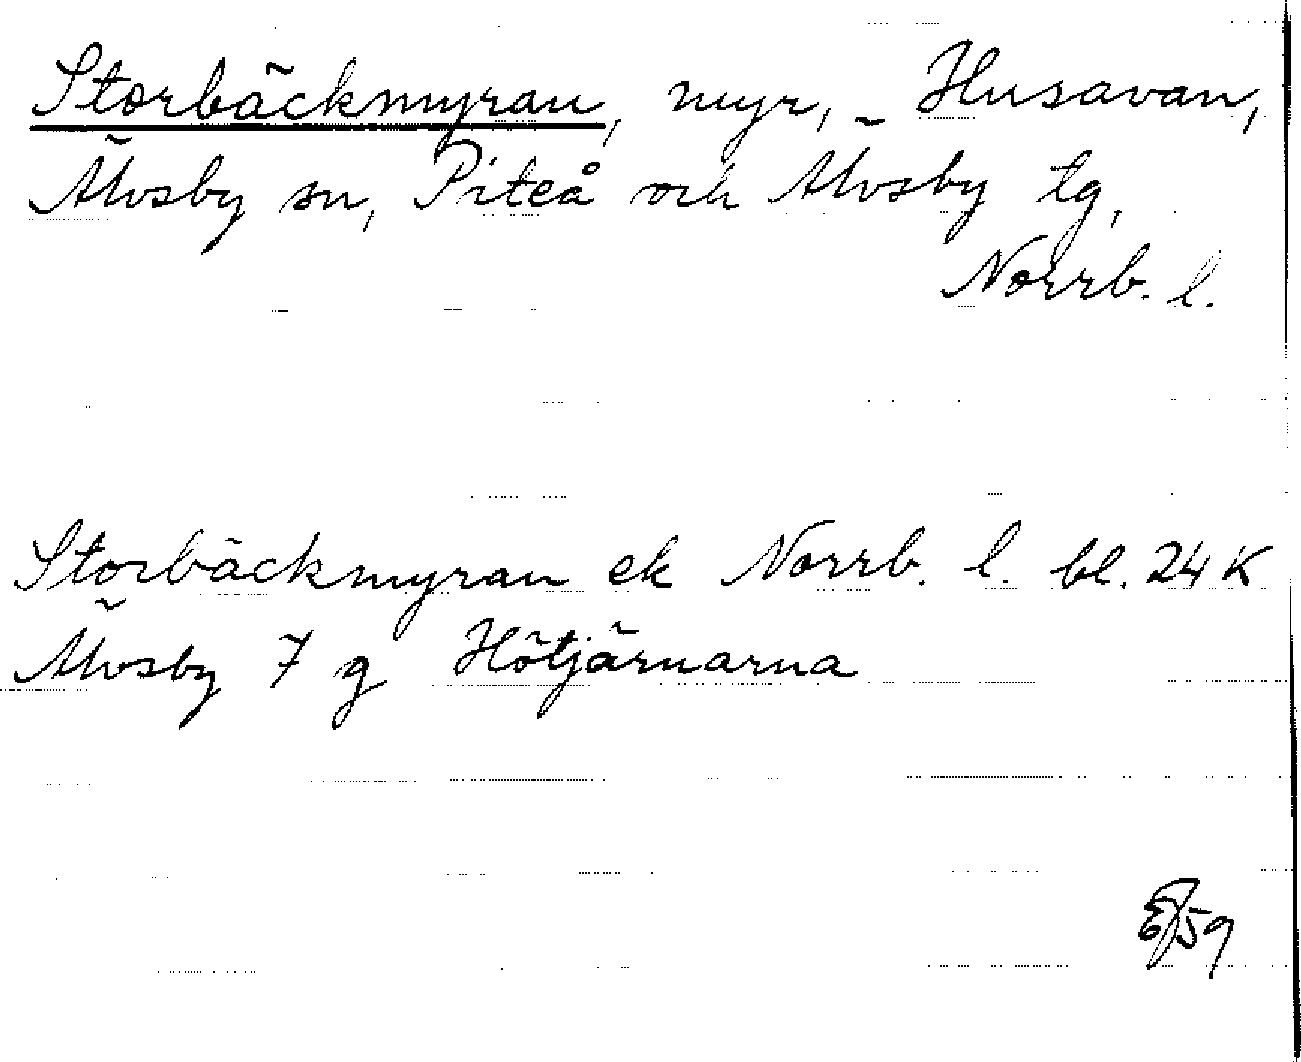 Storbäckmyran, myr, Husavan,
Älvsby sn, Piteå och Älvsby tg,
Norrb. l.
Storbäckmyran ek Norrb. l. bl. 24 K
Älvsby 7 g Hötjärnarna